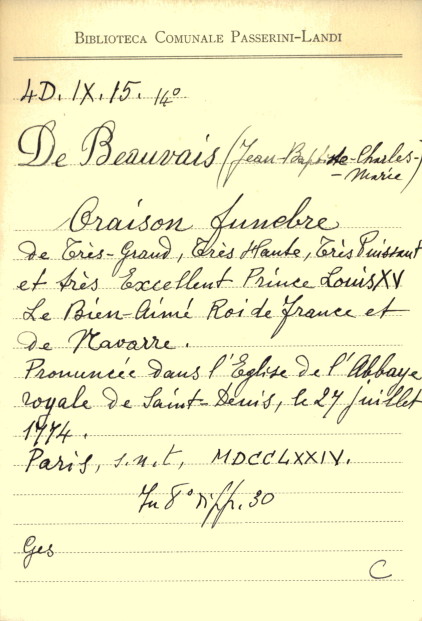 BIBLIOTECA COMUNALE PASSERINI-LANDI
4D. IX. 15. 14º
De Beauvais (Jean-Baptiste-Charles-
-Marie)
Oraison funebre
de Très-Grand, Très Haute, Très Puissant
et très Excellent Prince Louis XV
Le Bien-Aimé Roi de France et
de Navarre.
Pronuncée dans l'Eglise de l'Abbaye
royale de Saint-Denis, le 27 juillet
1774.
Paris, s.n.t, MDCCLXXIV.
In 8º di pp. 30
Ges
C